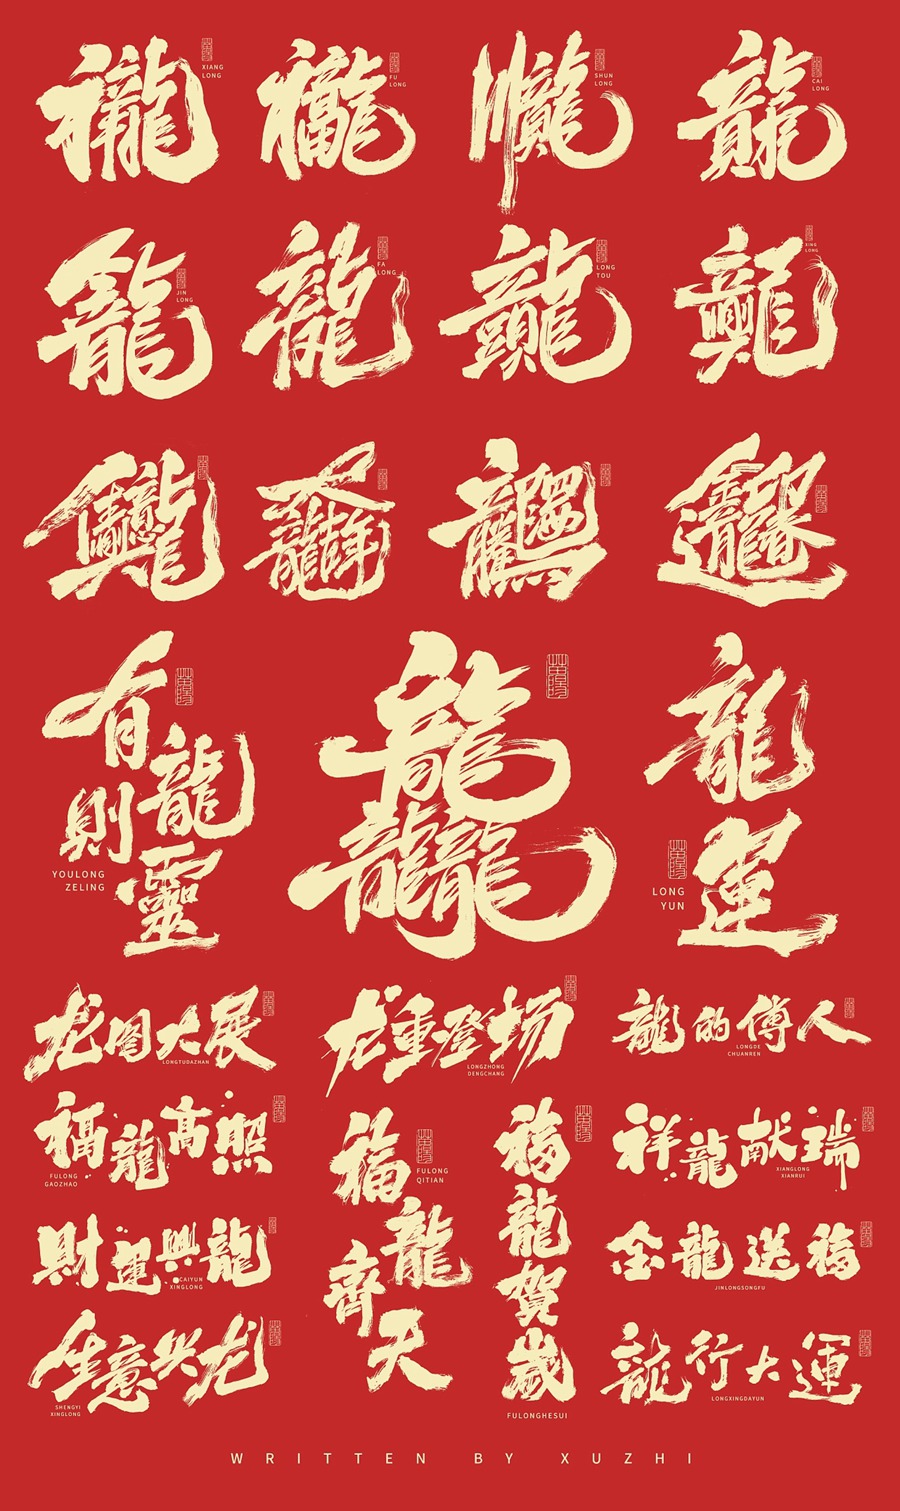 XIANG
LONG
FU
LONG
SHUN
LONG
CAI
LONG
JIN
LONG
龍
FA
LONG
LONG
TOU
XING
LONG
有
龍
則
靈
YOULONG
ZELING
龍
龍龍
龍
運
LONG
YUN
龙图大展
LONGTUDAZHAN
龙重登场
LONGZHONG
DENGCHANG
龍的傳人
LONGDE
CHUANREN
福龍高照
FULONG
GAOZHAO
福
龍
齊
天
FULONG
QITIAN
福
龍
賀
歲
FULONGHESUI
祥龍献瑞
XIANGLONG
XIANRUI
財運興龍
CAIYUN
XINGLONG
金龍送福
JINLONGSONGFU
生意兴龙
SHENGYI
XINGLONG
龍行大運
LONGXINGDAYUN
WRITTEN BY XUZHI